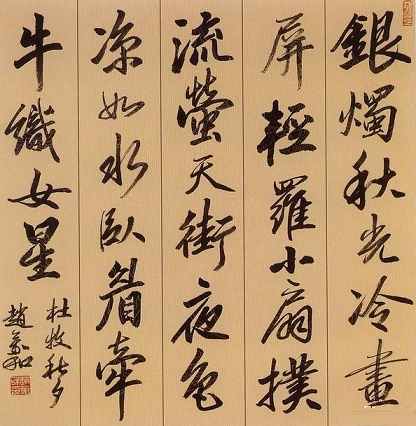 銀燭秋光冷畫
屏輕羅小扇撲
流螢天街夜色
涼如水臥看牽
牛織女星
杜牧秋夕
趙